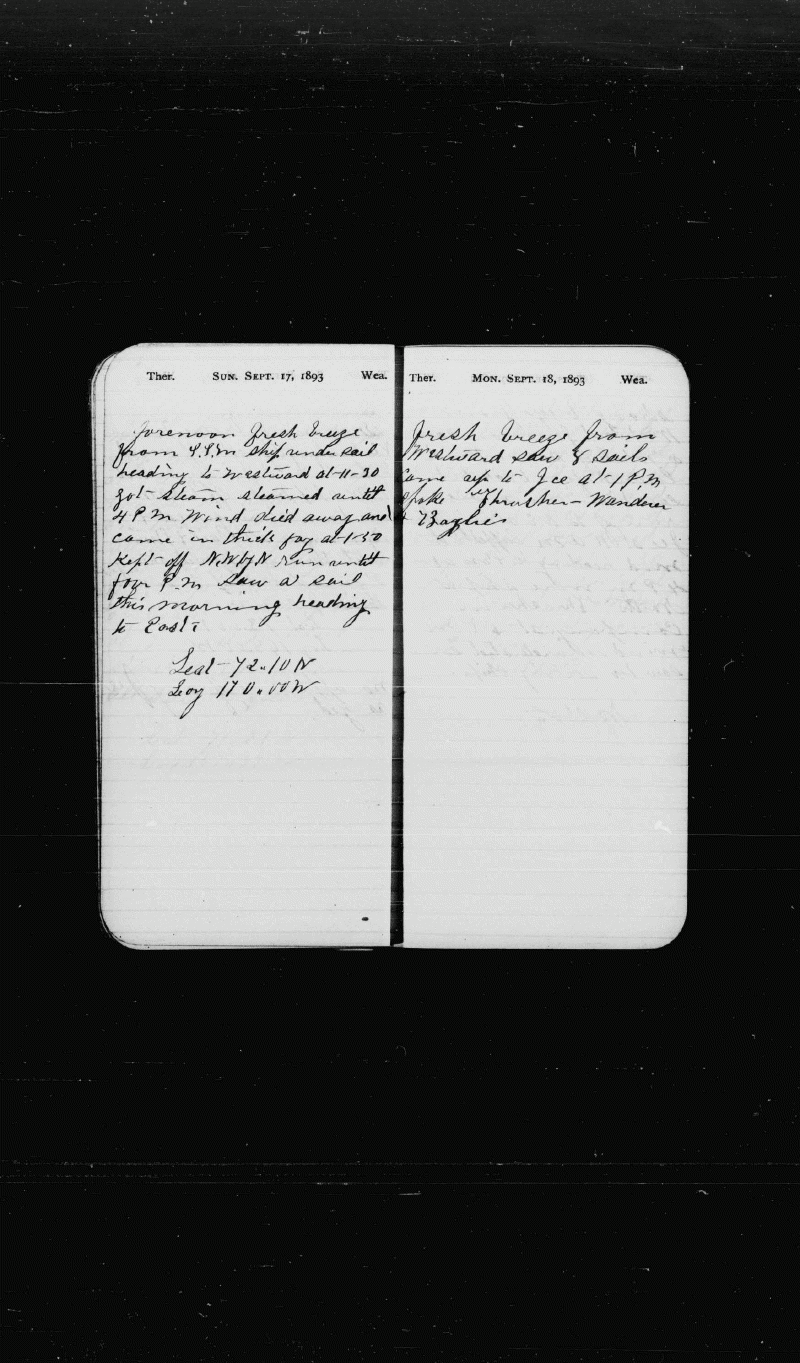 Ther. SUN. SEPT. 17, 1893 Wea.
forenoon fresh breeze
from S.S.W ship under sail
heading to Westward at 11-30
got steam steamed until
4 P.M Wind died away and
came in thick fog at 1-30
Kept off N.W by N run until
four P.M saw a sail
this morning heading
to East
Lat 72.10 N
Log 170.00 W
Ther. MON. SEPT. 18, 1893 Wea.
fresh breeze from
Westward saw 8 sails
Came up to Ice at 1 P.M
spoke Thrasher - Wanderer